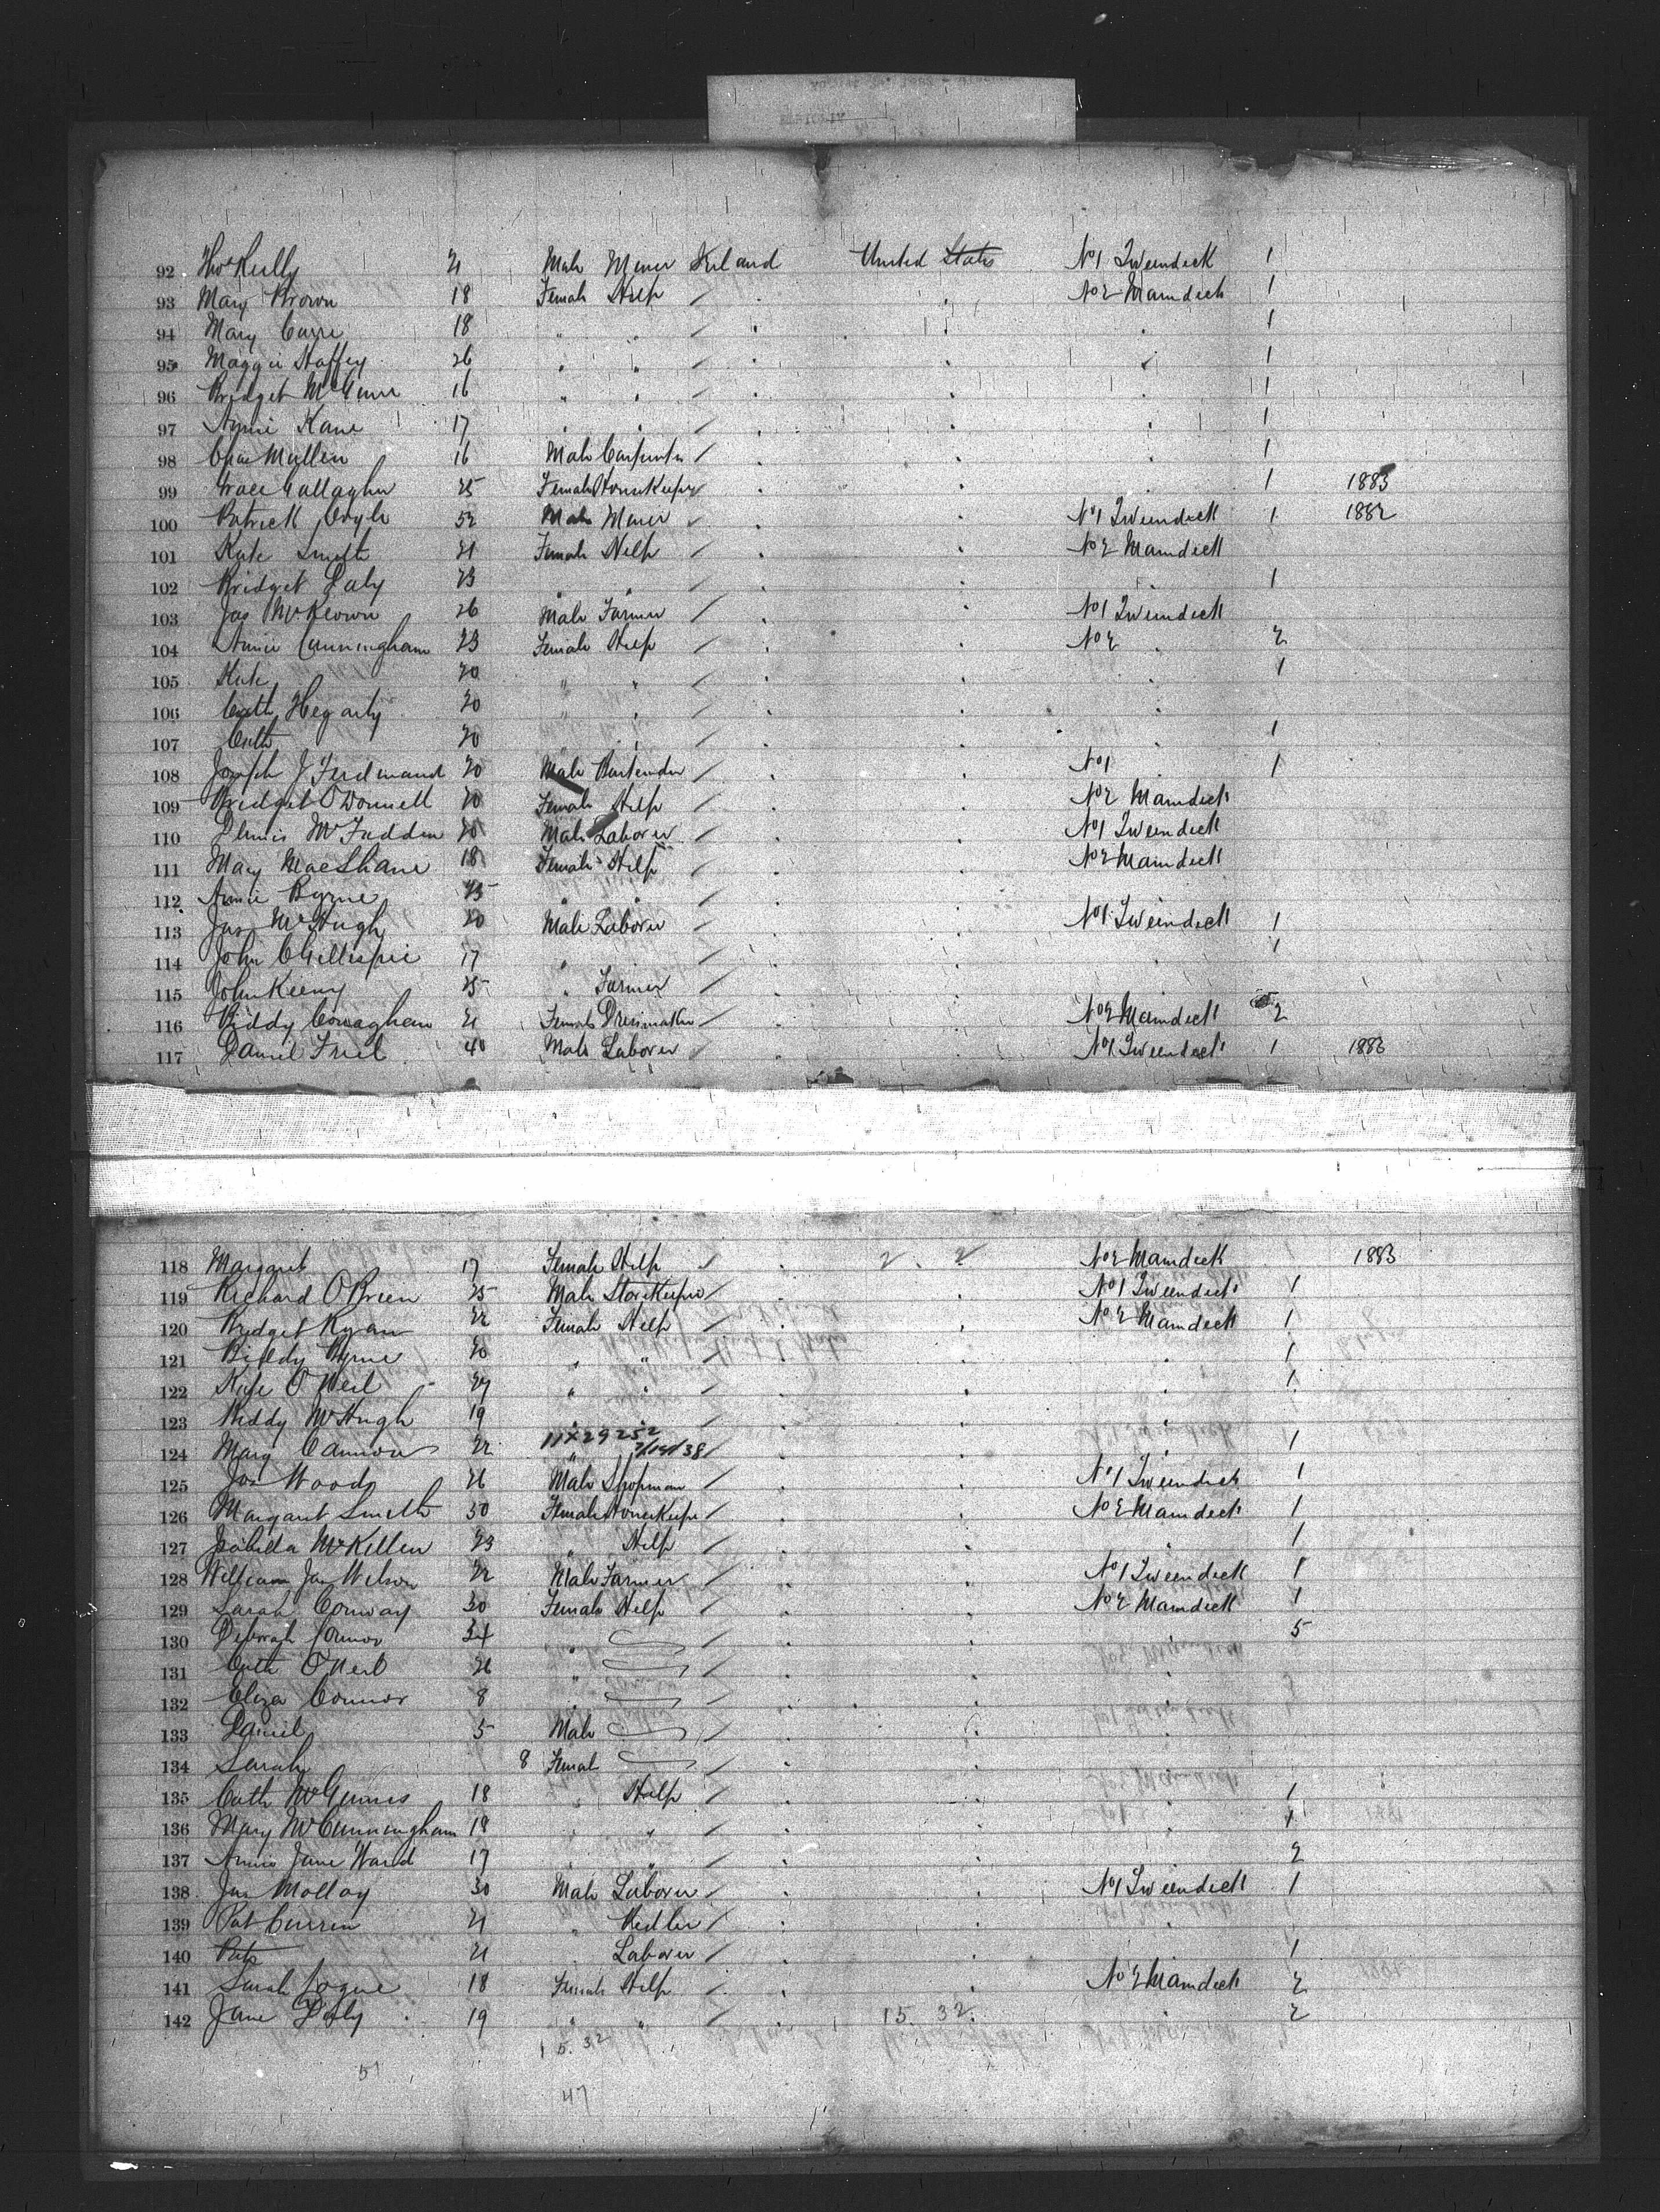 92 Thos Kelly 21 Male Miner Ireland United States No 1 Tweendeck 1
93 Mary Brown 18 Female Help / . . No 2 Maindeck 1
94 Mary Curre 18 " " / . . . 1
95 Maggie Haffey 26 " " / . . . 1
96 Bridget McGinn 16 " " / . . . 1
97 Annie Kane 17 " " / . . . 1
98 Chas Mullen 16 Male Carpenter / . . . 1
99 Grace Gallagher 25 Female Housekeeper / . . . 1 1883
100 Patrick Coyle 52 Male Miner / . . No 1 Tweendeck 1 1882
101 Kate Smith 21 Female Help / . . No 2 Maindeck
102 Bridget Daly 23 " " / . . . 1
103 Jas McKeown 26 Male Farmer / . . No 1 Tweendeck
104 Annie Cunningham 23 Female Help / . . No 2 . 2
105 Kate 20 " " / . . . 1
106 Cath Hegarty 20 " " / . . .
107 Cath 20 " " / . . . 1
108 Joseph J Ferdinand 20 Male Bartender / . . No 1 . 1
109 Bridget O'Donnell 20 Female Help / . . No 2 Maindeck
110 Dennis McFadden 20 Male Laborer / . . No 1 Tweendeck
111 Mary MacShane 18 Female Help / . . No 2 Maindeck
112 Annie Byrne 25 " " / . . .
113 Jas McHugh 20 Male Laborer / . . No 1 Tweendeck 1
114 John Gillespie 17 " " / . . . 1
115 John Keeny 25 " Farmer / . . .
116 Biddy Conaghan 21 Female Dressmaker / . . No 2 Maindeck 2
117 Daniel Friel 40 Male Laborer / . . No 1 Tweendeck 1 1883
118 Margaret 17 Female Help / . 2. 2 . No 2 Maindeck 1883
119 Richard O'Brien 25 Male Storekeeper / . . No 1 Tweendeck 1
120 Bridget Ryan 22 Female Help / . . No 2 Maindeck 1
121 Biddy Byrne 20 " " / . . . 1
122 Kate O'Neil 27 " " / . . . 1
123 Biddy McHugh 19 " " / . . .
124 Mary Cannon 22 11X29252 / . . . 1
125 Jos Woods 26 Male Shopman / . . No 1 Tweendeck 1
126 Margaret Smith 50 Female Housekeeper / . . No 2 Maindeck 1
127 Isabella McKillen 23 " Help / . . . 1
128 William Jas Wilson 22 Male Farmer / . . No 1 Tweendeck 1
129 Sarah Conway 30 Female Help / . . No 2 Maindeck 1
130 Deborah Connor 34 " / . . . 5
131 Cath O'Neil 26 " / . . .
132 Eliza Connor 8 " / . . .
133 Daniel 5 Male / . . .
134 Sarah 8 Female / . . .
135 Cath McGinnis 18 " Help / . . . 1
136 Mary McCunningham 18 " " / . . . 1
137 Annie Jane Ward 17 " " / . . . 2
138 Jas Molloy 30 Male Laborer / . . No 1 Tweendeck 1
139 Pat Curren 21 " Pedler / . . .
140 Pat 21 " Laborer / . . . 1
141 Sarah Logue 18 Female Help / . . No 2 Maindeck 2
142 Jane Daly 19 " " / . 15. 32. . 2
15. 32
51
47